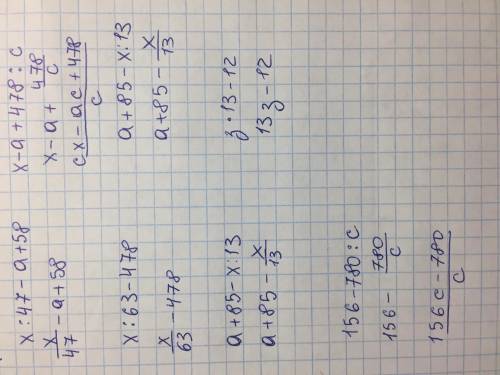 x:47-a+58
x/47-a+58
x:63-478
x/63-478
a+85-x:13
a+85-x/13
156-780:c
156-780/c
(156c-780)/c
x-a+478:c
x-a+478/c
(cx-ac+478)/c
a+85-x:13
a+85-x/13
z·13-12
13z-12